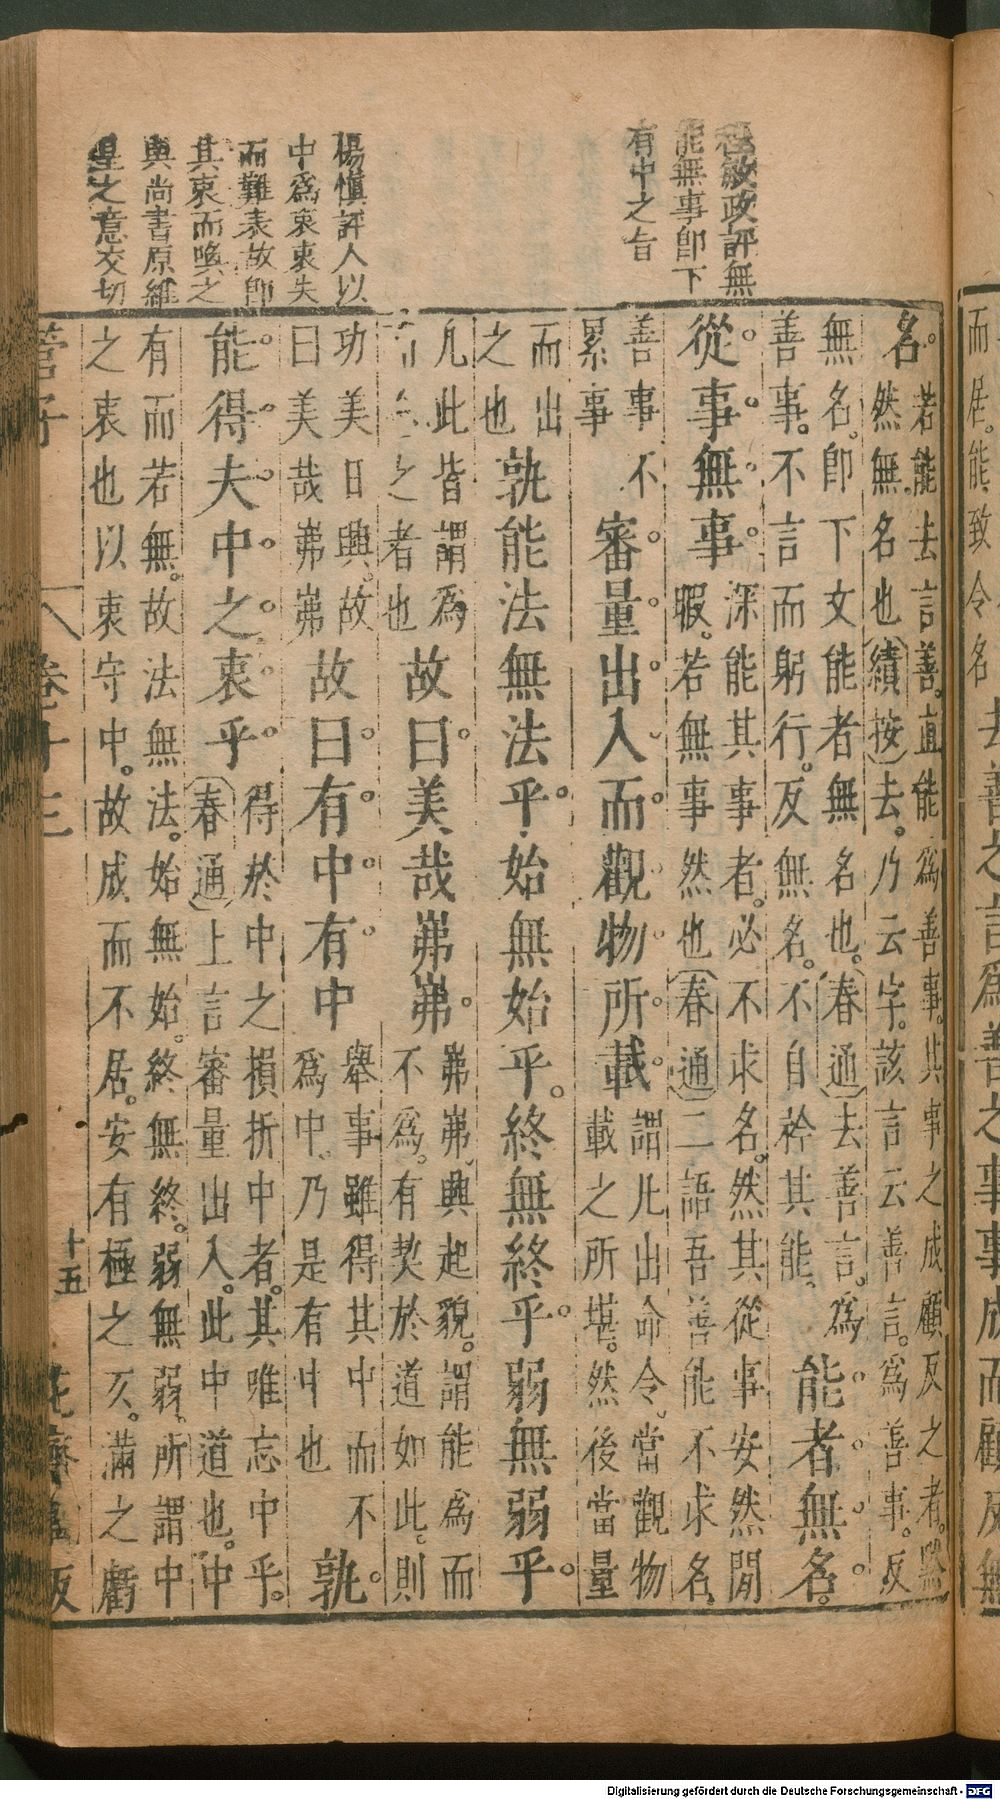 程敏政評無
能無事即下
有中之旨
楊慎評人以
中爲衷衷失
而難表故即
其衷而喚之
與尚書原維
皇之意交切
而居。能致令名
去善之言爲善之事事成而顧反無
名。
若能去言善。直能爲善事。其事之成顧反之者。黙
然無名也(續按)去。乃云字。該言云善言。爲善事。反
無名。即下文能者無名也。(春通)去善言。爲
善事。不言而躬行。反無名。不自矜其能。
能者無名。
從事無事。
深能其事者。必不求名。然其從事安然閒
暇。若無事然也(春通)二語吾善能不求名
善事不
累事
審量出入而觀物所載
謂凡出命令。當觀物
載之所堪。然後當量
而出
之也
孰能法無法乎始無始乎。終無終乎。弱無弱乎。
凡此皆謂爲
之者也
故曰。美哉岪岪。
岪岪興起貌。謂能爲而
不爲。有契於道如此。則
功美日興。故
曰美哉岪岪
故曰。有中有中
舉事雖得其中而不
爲中。乃是有中也
孰
能得夫中之衷乎
得於中之損折中者。其唯忘中乎。
(春通)上言審量出入。此中道也。中
有而若無。故法無法。始無始。終無終。弱無弱。所謂中
之衷也以衷守中。故成而不居。安有極之亥。滿之虧
管子
卷十三
十五
Digitalisierung gefördert durch die Deutsche Forschungsgemeinschaft - DFG